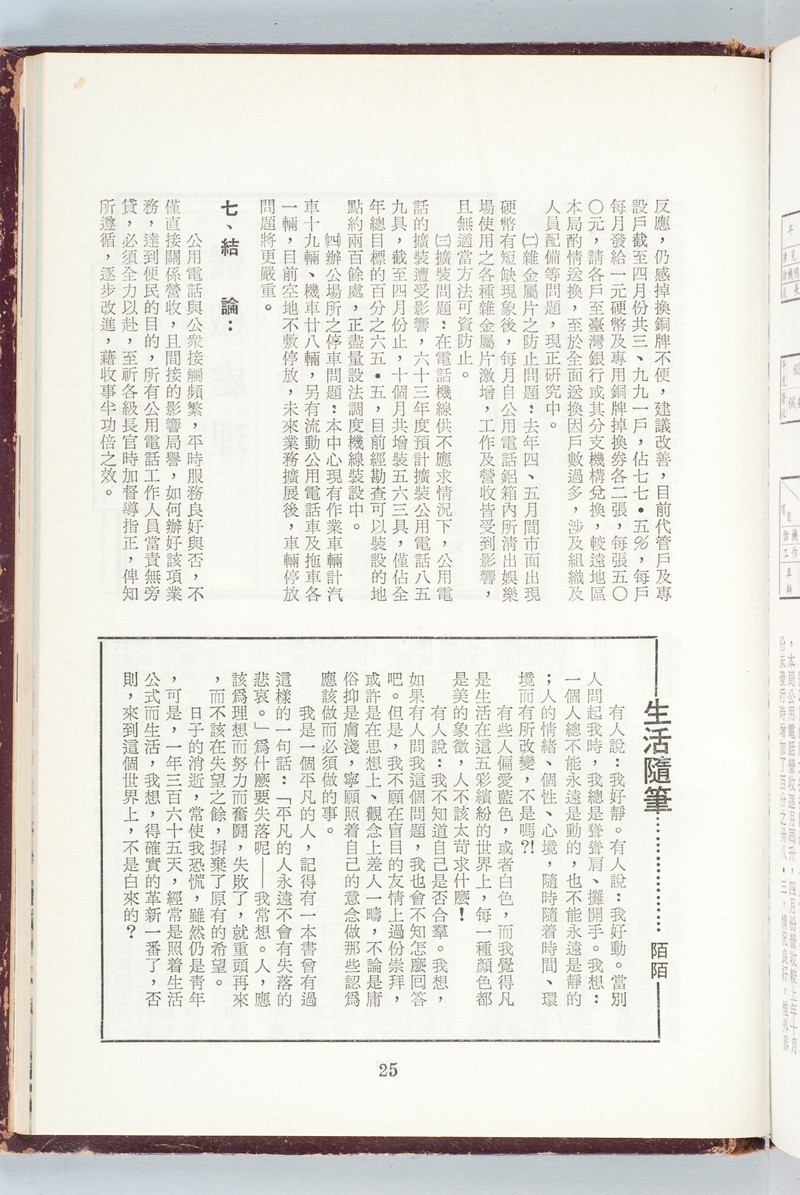 反應，仍感掉換銅牌不便，建議改善，目前代管戶及專
設戶截至四月份共三、九九一戶，佔七七•五％，每戶
每月發給一元硬幣及專用銅牌掉換券各二張，每張五〇
〇元，請各戶至臺灣銀行或其分支機構兌換，較遠地區
本局酌情送換，至於全面送換因戶數過多，涉及組織及
人員配備等問題，現正硏究中。
㈡雜金屬片之防止問題：去年四、五月間市面出現
硬幣有短缺現象後，每月自公用電話鋁箱內所淸出娛樂
場使用之各種雜金屬片激增，工作及營收皆受到影響，
且無適當方法可資防止。
㈢擴裝問題：在電話機線供不應求情況下，公用電
話的擴裝遭受影響，六十三年度預計擴裝公用電話八五
九具，截至四月份止，十個月共增裝五六三具，僅佔全
年總目標的百分之六五•五，目前經勘查可以裝設的地
點約兩百餘處，正盡量設法調度機線裝設中。
㈣辦公場所之停車問題：本中心現有作業車輛計汽
車十九輛、機車廿八輛，另有流動公用電話車及拖車各
一輛，目前空地不敷停放，未來業務擴展後，車輛停放
問題將更嚴重。
七、結　論：
公用電話與公衆接觸頻繁，平時服務良好與否，不
僅直接關係營收，且間接的影響局譽，如何辦好該項業
務，達到便民的目的，所有公用電話工作人員當責無旁
貸，必須全力以赴，至祈各級長官時加督導指正，俾知
所遵循，逐步改進，藉收事半功倍之效。
生活隨筆………………陌陌
有人說：我好靜。有人說：我好動。當別
人問起我時，我總是聳聳肩、攤開手。我想：
一個人總不能永遠是動的，也不能永遠是靜的
；人的情緒、個性、心境，隨時隨着時間、環
境而有所改變，不是嗎？！
有些人偏愛藍色，或者白色，而我覺得凡
是生活在這五彩繽紛的世界上，每一種顏色都
是美的象徵，人不該太苛求什麽！
有人說：我不知道自己是否合羣。我想，
如果有人問我這個問題，我也會不知怎麽回答
吧。但是，我不願在盲目的友情上過份崇拜，
或許是在思想上、觀念上差人一疇，不論是庸
俗抑是膚淺，寧願照着自己的意念做那些認爲
應該做而必須做的事。
我是一個平凡的人，記得有一本書曾有過
這樣的一句話：「平凡的人永遠不會有失落的
悲哀。」爲什麽要失落呢——我常想。人，應
該爲理想而努力而奮鬪，失敗了，就重頭再來
，而不該在失望之餘，摒棄了原有的希望。
日子的消逝，常使我恐慌，雖然仍是靑年
，可是，一年三百六十五天，經常是照着生活
公式而生活，我想，得確實的革新一番了，否
則，來到這個世界上，不是白來的？
25